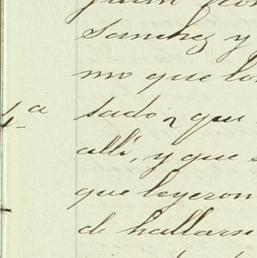 Sanchez y
mo que los
4ª sado, que
alli, y que
que leyeron
de hallarse